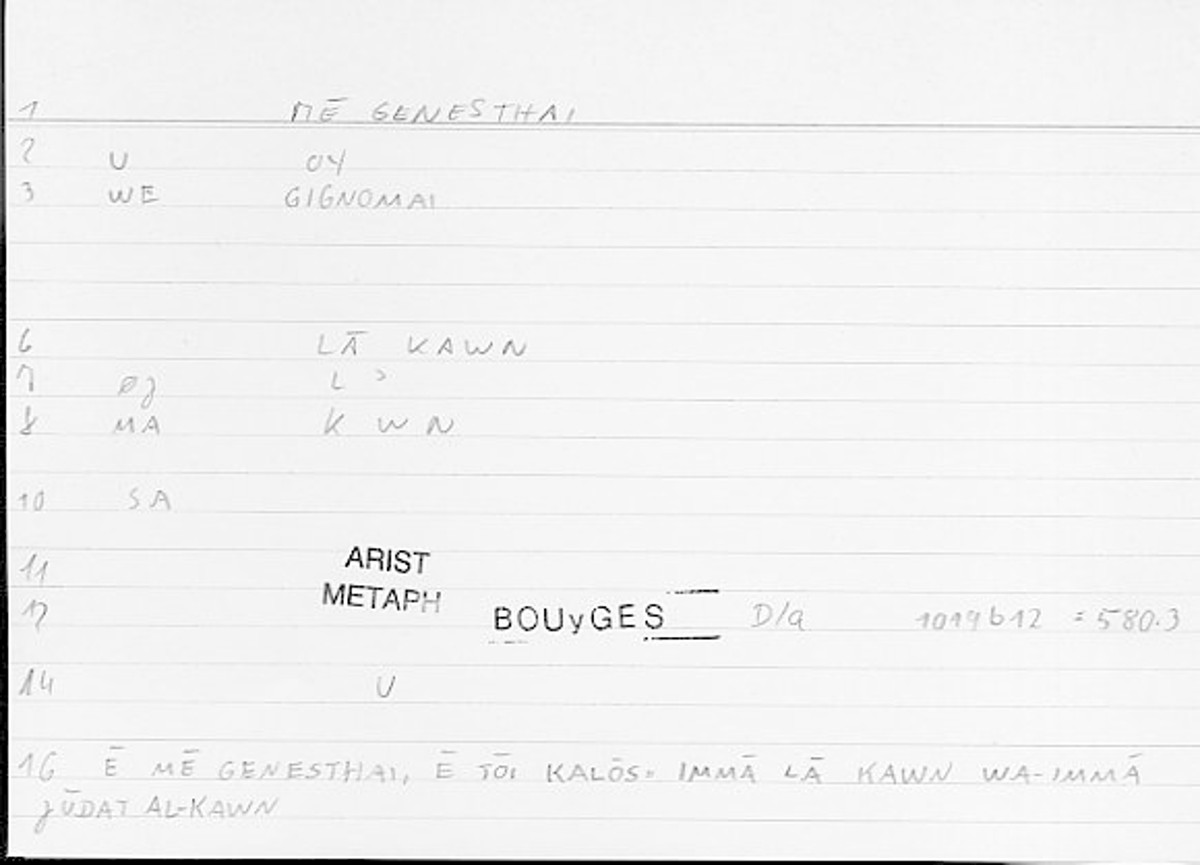 1 MĒ GENESTHAI
2 U OY
3 WE GIGNOMAI
6 LĀ KAWN
7 ØJ L ʾ
8 MA K W N
10 SA
11 ARIST
METAPH
12 BOUyGES D/a 1019b12 = 580.3
14 U
16 Ē MĒ GENESTHAI, Ē TŌI KALŌS = IMMĀ LĀ KAWN WA-IMMĀ
JŪDAT AL-KAWN